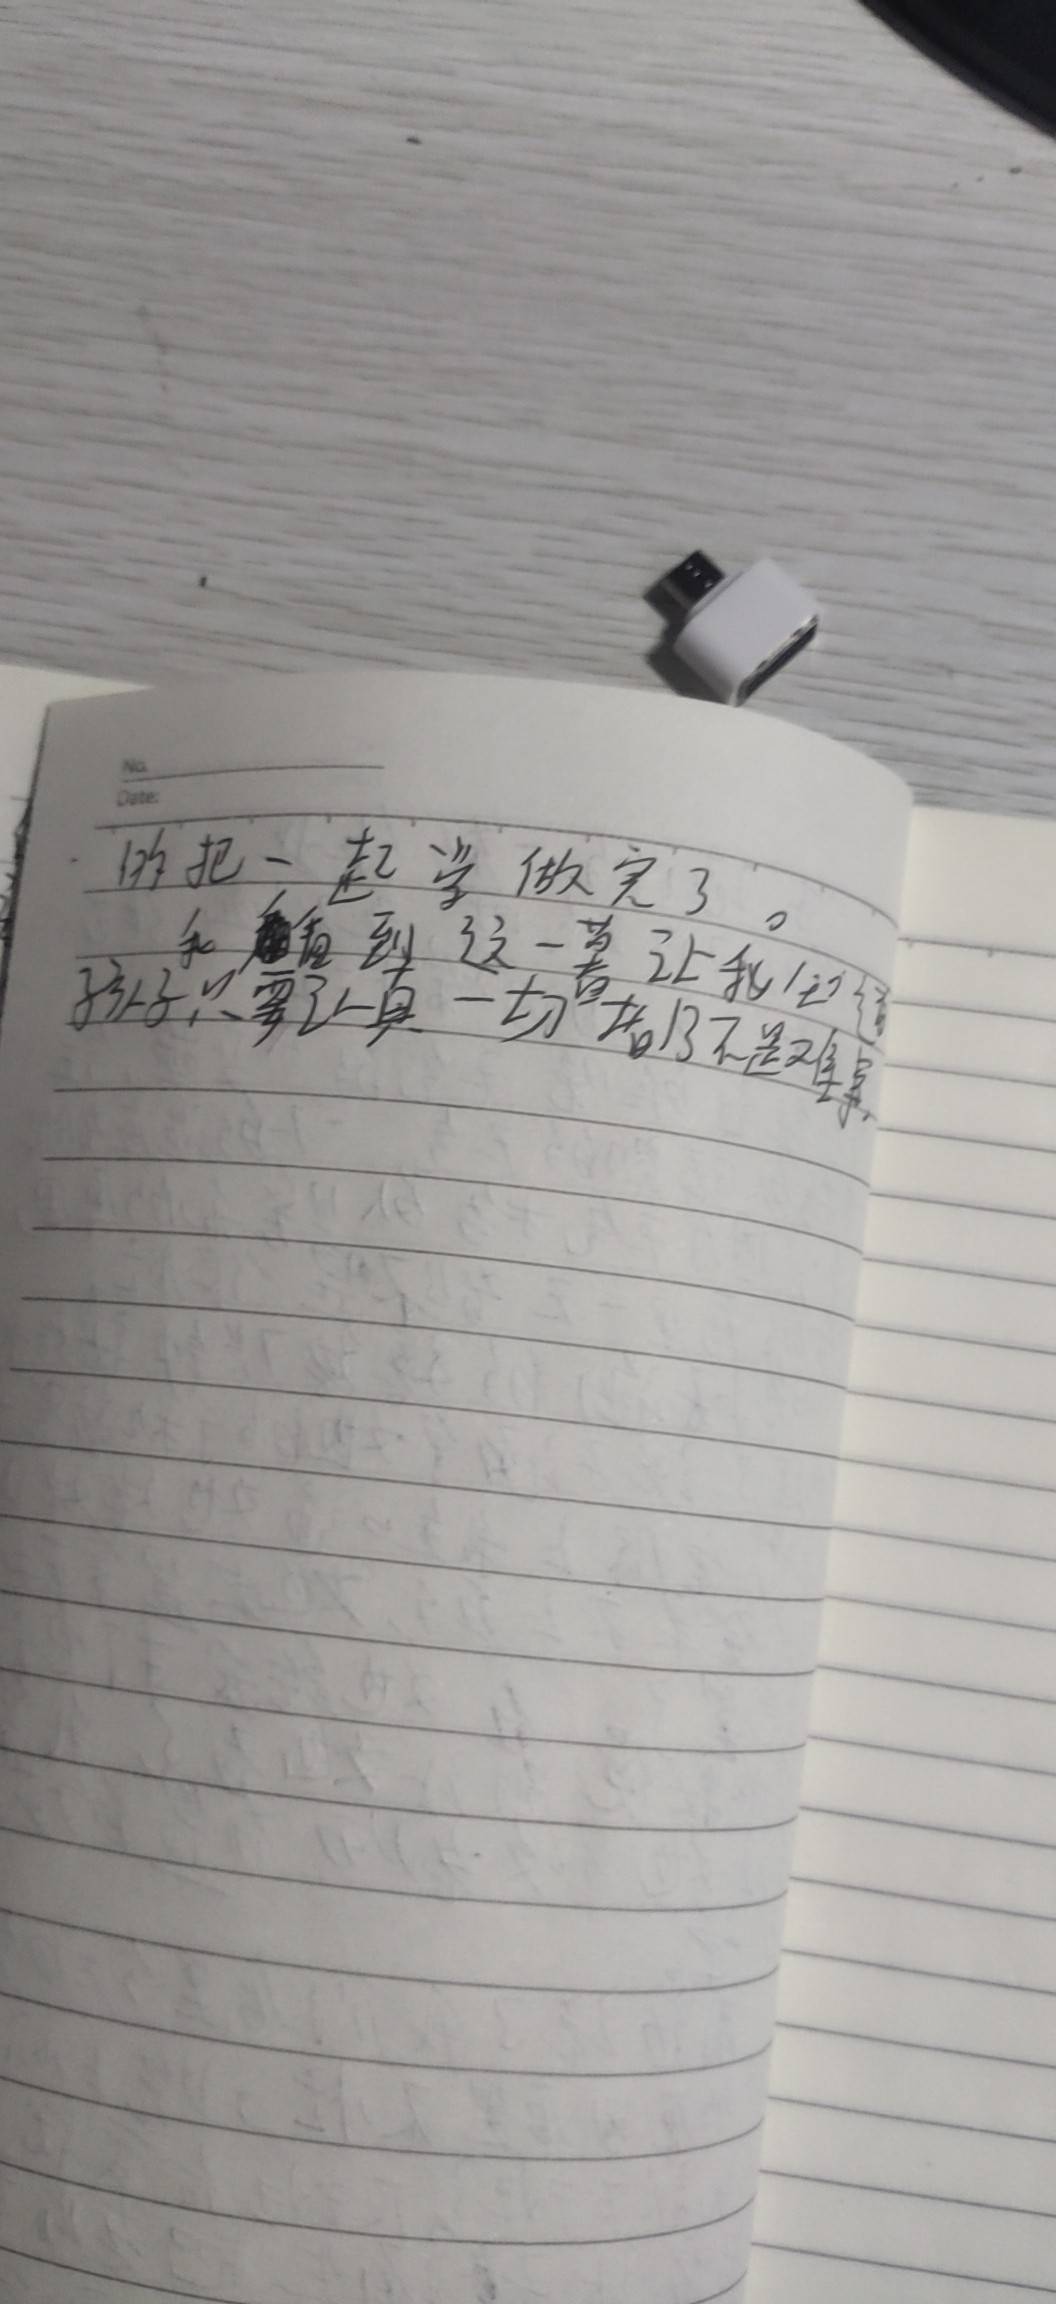 No.
Date:
的把一起堂做完了。
我看到这一幕让我们觉
孩子只要认真一切都不是难事,